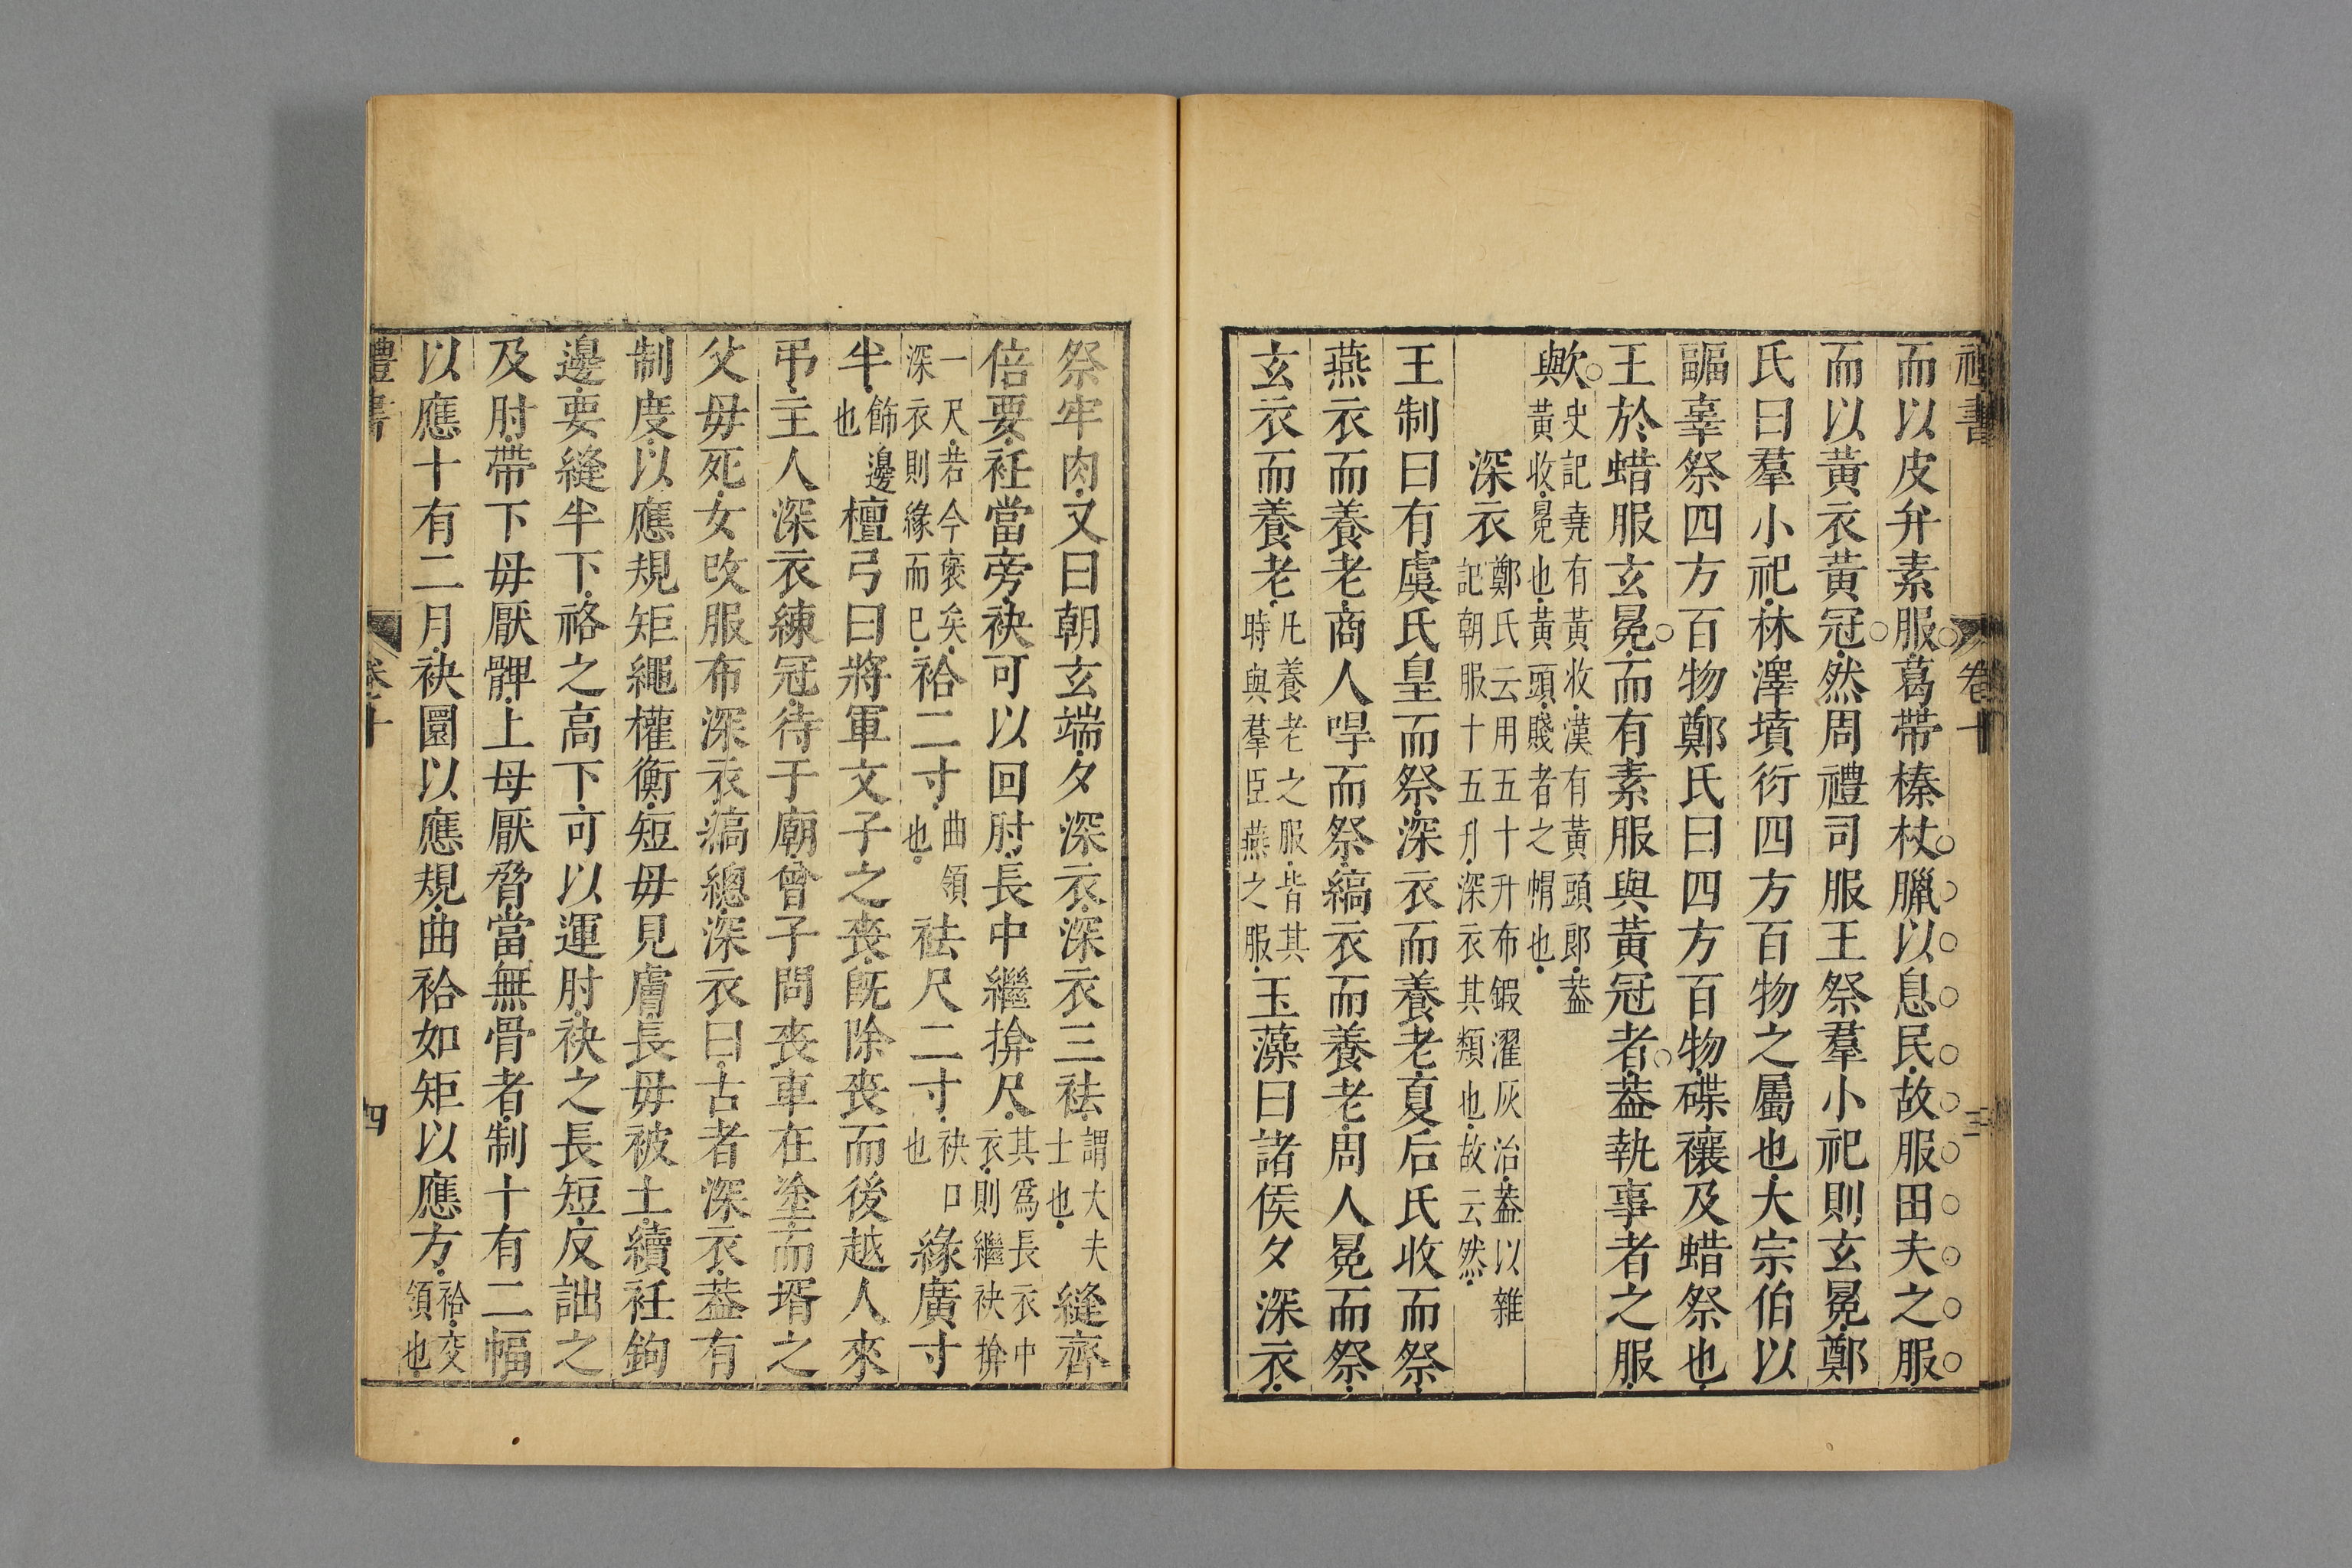 禮書 卷十 三
而以皮弁素服葛帶榛杖臘以息民故服田夫之服
而以黃衣黃冠然周禮司服王祭羣小祀則玄冕鄭
氏曰羣小祀林澤墳衍四方百物之屬也大宗伯以
疈辜祭四方百物鄭氏曰四方百物磔禳及蜡祭也
王於蜡服玄冕而有素服與黃冠者葢執事者之服
歟史記堯有黃收漢有黃頭郎葢
與黃收冕也黃頭賤者之帽也
深衣鄭氏云用五十升布鍜濯灰治葢以雜
記朝服十五升深衣其類也故云然
王制曰有虞氏皇而祭深衣而養老夏后氏收而祭
燕衣而養老商人哻而祭縞衣而養老周人冕而祭
玄衣而養老凡養老之服皆其時與羣臣燕之服玉藻曰諸侯夕深衣
祭牢肉又曰朝玄端夕深衣深衣三袪謂大夫士也縫齊
倍要衽當旁袂可以回肘長中繼揜尺其爲長衣中衣則繼袂揜
一尺若今褎矣深衣則緣而巳袷二寸曲領也袪尺二寸袂口也緣廣寸
半飾邊也檀弓曰將軍文子之喪旣除喪而後越人來
弔主人深衣練冠待于廟曾子問喪車在塗而壻之
父毋死女改服布深衣縞總深衣曰古者深衣葢有
制度以應規矩繩權衡短毋見膚長毋被土續衽鉤
邊要縫半下袼之高下可以運肘袂之長短反詘之
及肘帶下毋厭髀上母厭脅當無骨者制十有二幅
以應十有二月袂圜以應規曲袷如矩以應方袷交領也
禮書 卷十 四